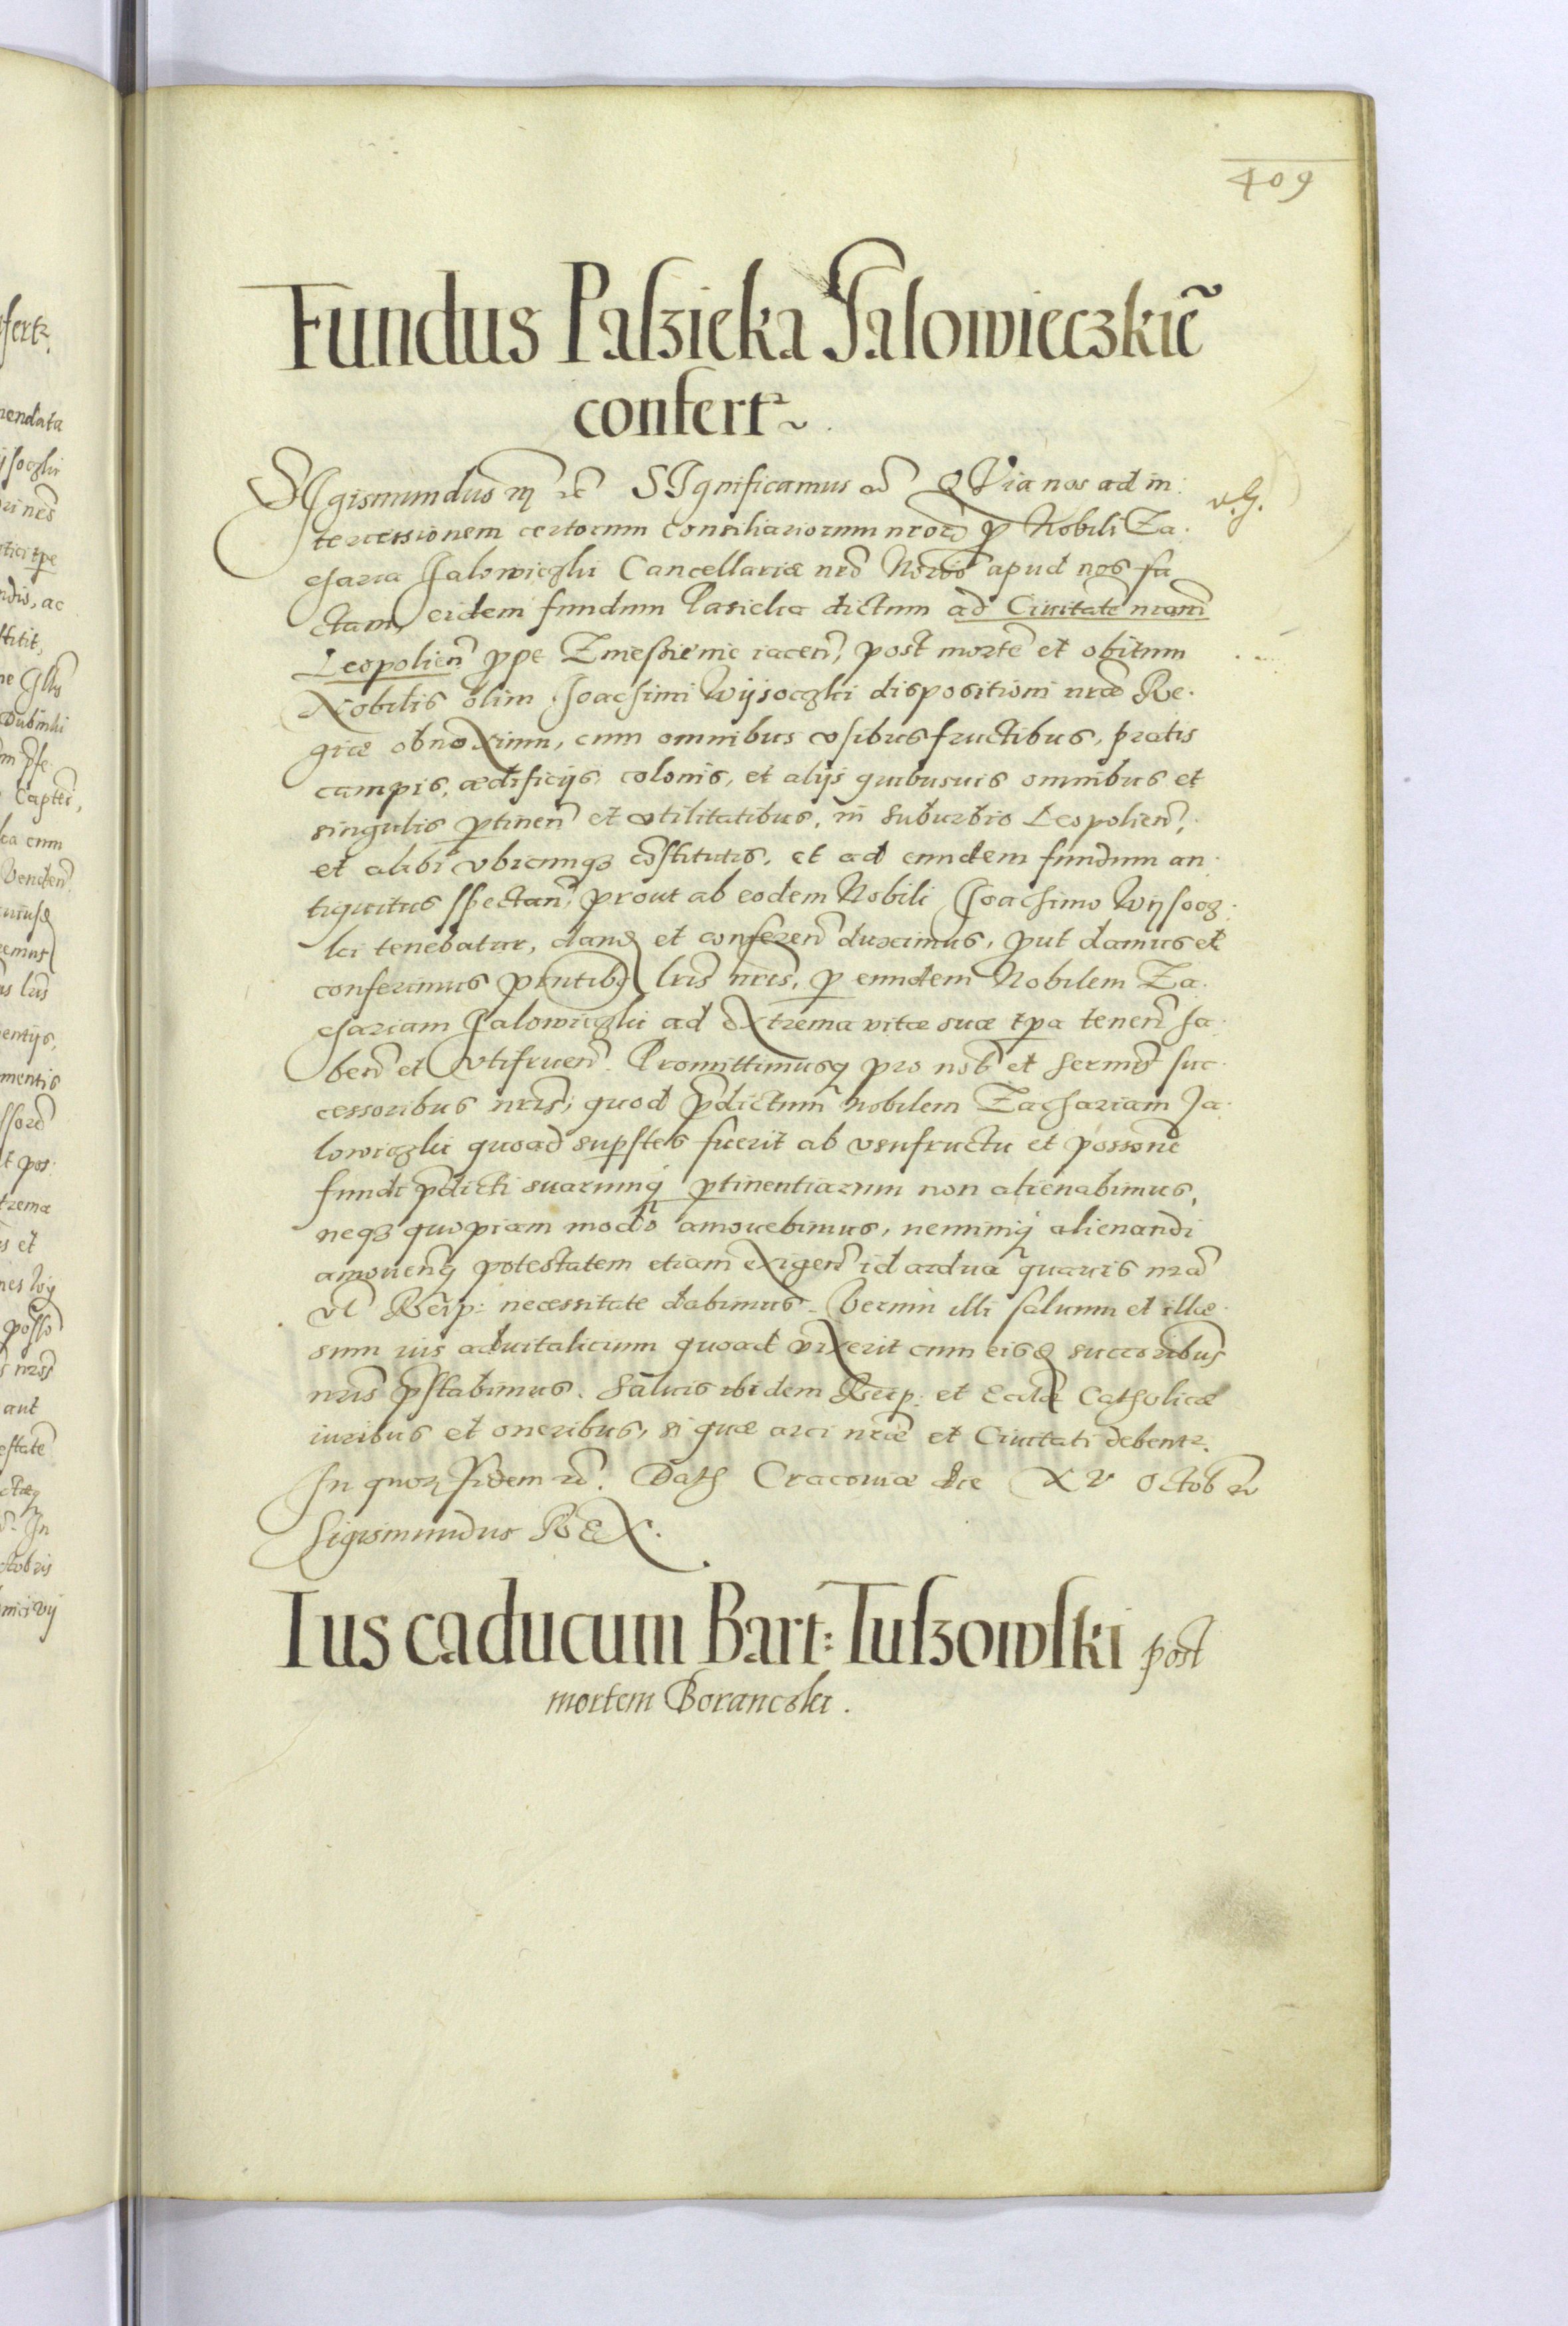 409
Fundus Paſzieka Jalowieczkiẽ
confert~.
SIgismundus III etc SIgnificamus etc QVia nos ad in:
tercessionem certorum Consiliariorum nrorũ p Nobili Za:
charia Jalowiczki Cancellariæ nræ Norio apud nos fa
ctam, eidem fundum Pasieka dictum ad Ciuitatẽ nram
Leopolien̄ ppe Zniesienie iacen̄, post mortẽ et obitum
Nobilis olim Joachimi Wysoczki dispositioni nræ Re.
giæ obnoXium, cum omnibus vsibus fructibus, pratis
campis, ædificijs, colonis, et alijs quibusuis omnibus et
singulis ptinen̄ et vtilitatibus, in suburbio Leopolien̄,
et alibi vbicunqz cõstitutis, et ad eundem fundum an:
tiquitus spectan̄, prout ab eodem Nobili Joachimo Wysocz:
ki tenebatur, dand et conferen̄ duximus, put damus et
conferimus pntibq lris nris, p eundem Nobilem Za.
chariam Jalowiczki ad eXtrema vitæ suæ tpa tenen̄ ha:
ben̄ et vtifruen̄. Promittimusq pro nob et Sermis suc:
cessoribus nris, quod pdictum Nobilem Zachariam Ja:
lowiczki quoad supstes fuerit ab vsufructu et possone
fundi pdicti suarumq ptinentiarum non alienabimus,
neqz quopiam modo amouebimus, neminiq alienandi
amouenq potestatem etiam eXigen̄ id ardua quauis nra
vl Reip: necessitate dabimus. Verum illi saluum et illæ:
sum ius aduitalicium quoad viXerit cum eisd succoribus
nris pstabimus. Saluis ibidem Reip: et Ecclæ Catholicæ
iuribus et oneribus, si quæ arci nræ et Ciuitati debentr.
In quor fidem etc. Dat Cracouiæ die XV Octob etc
Sigismundus REX.
Ius caducum Bart: Tuſzowſki post
mortem Boranczki.